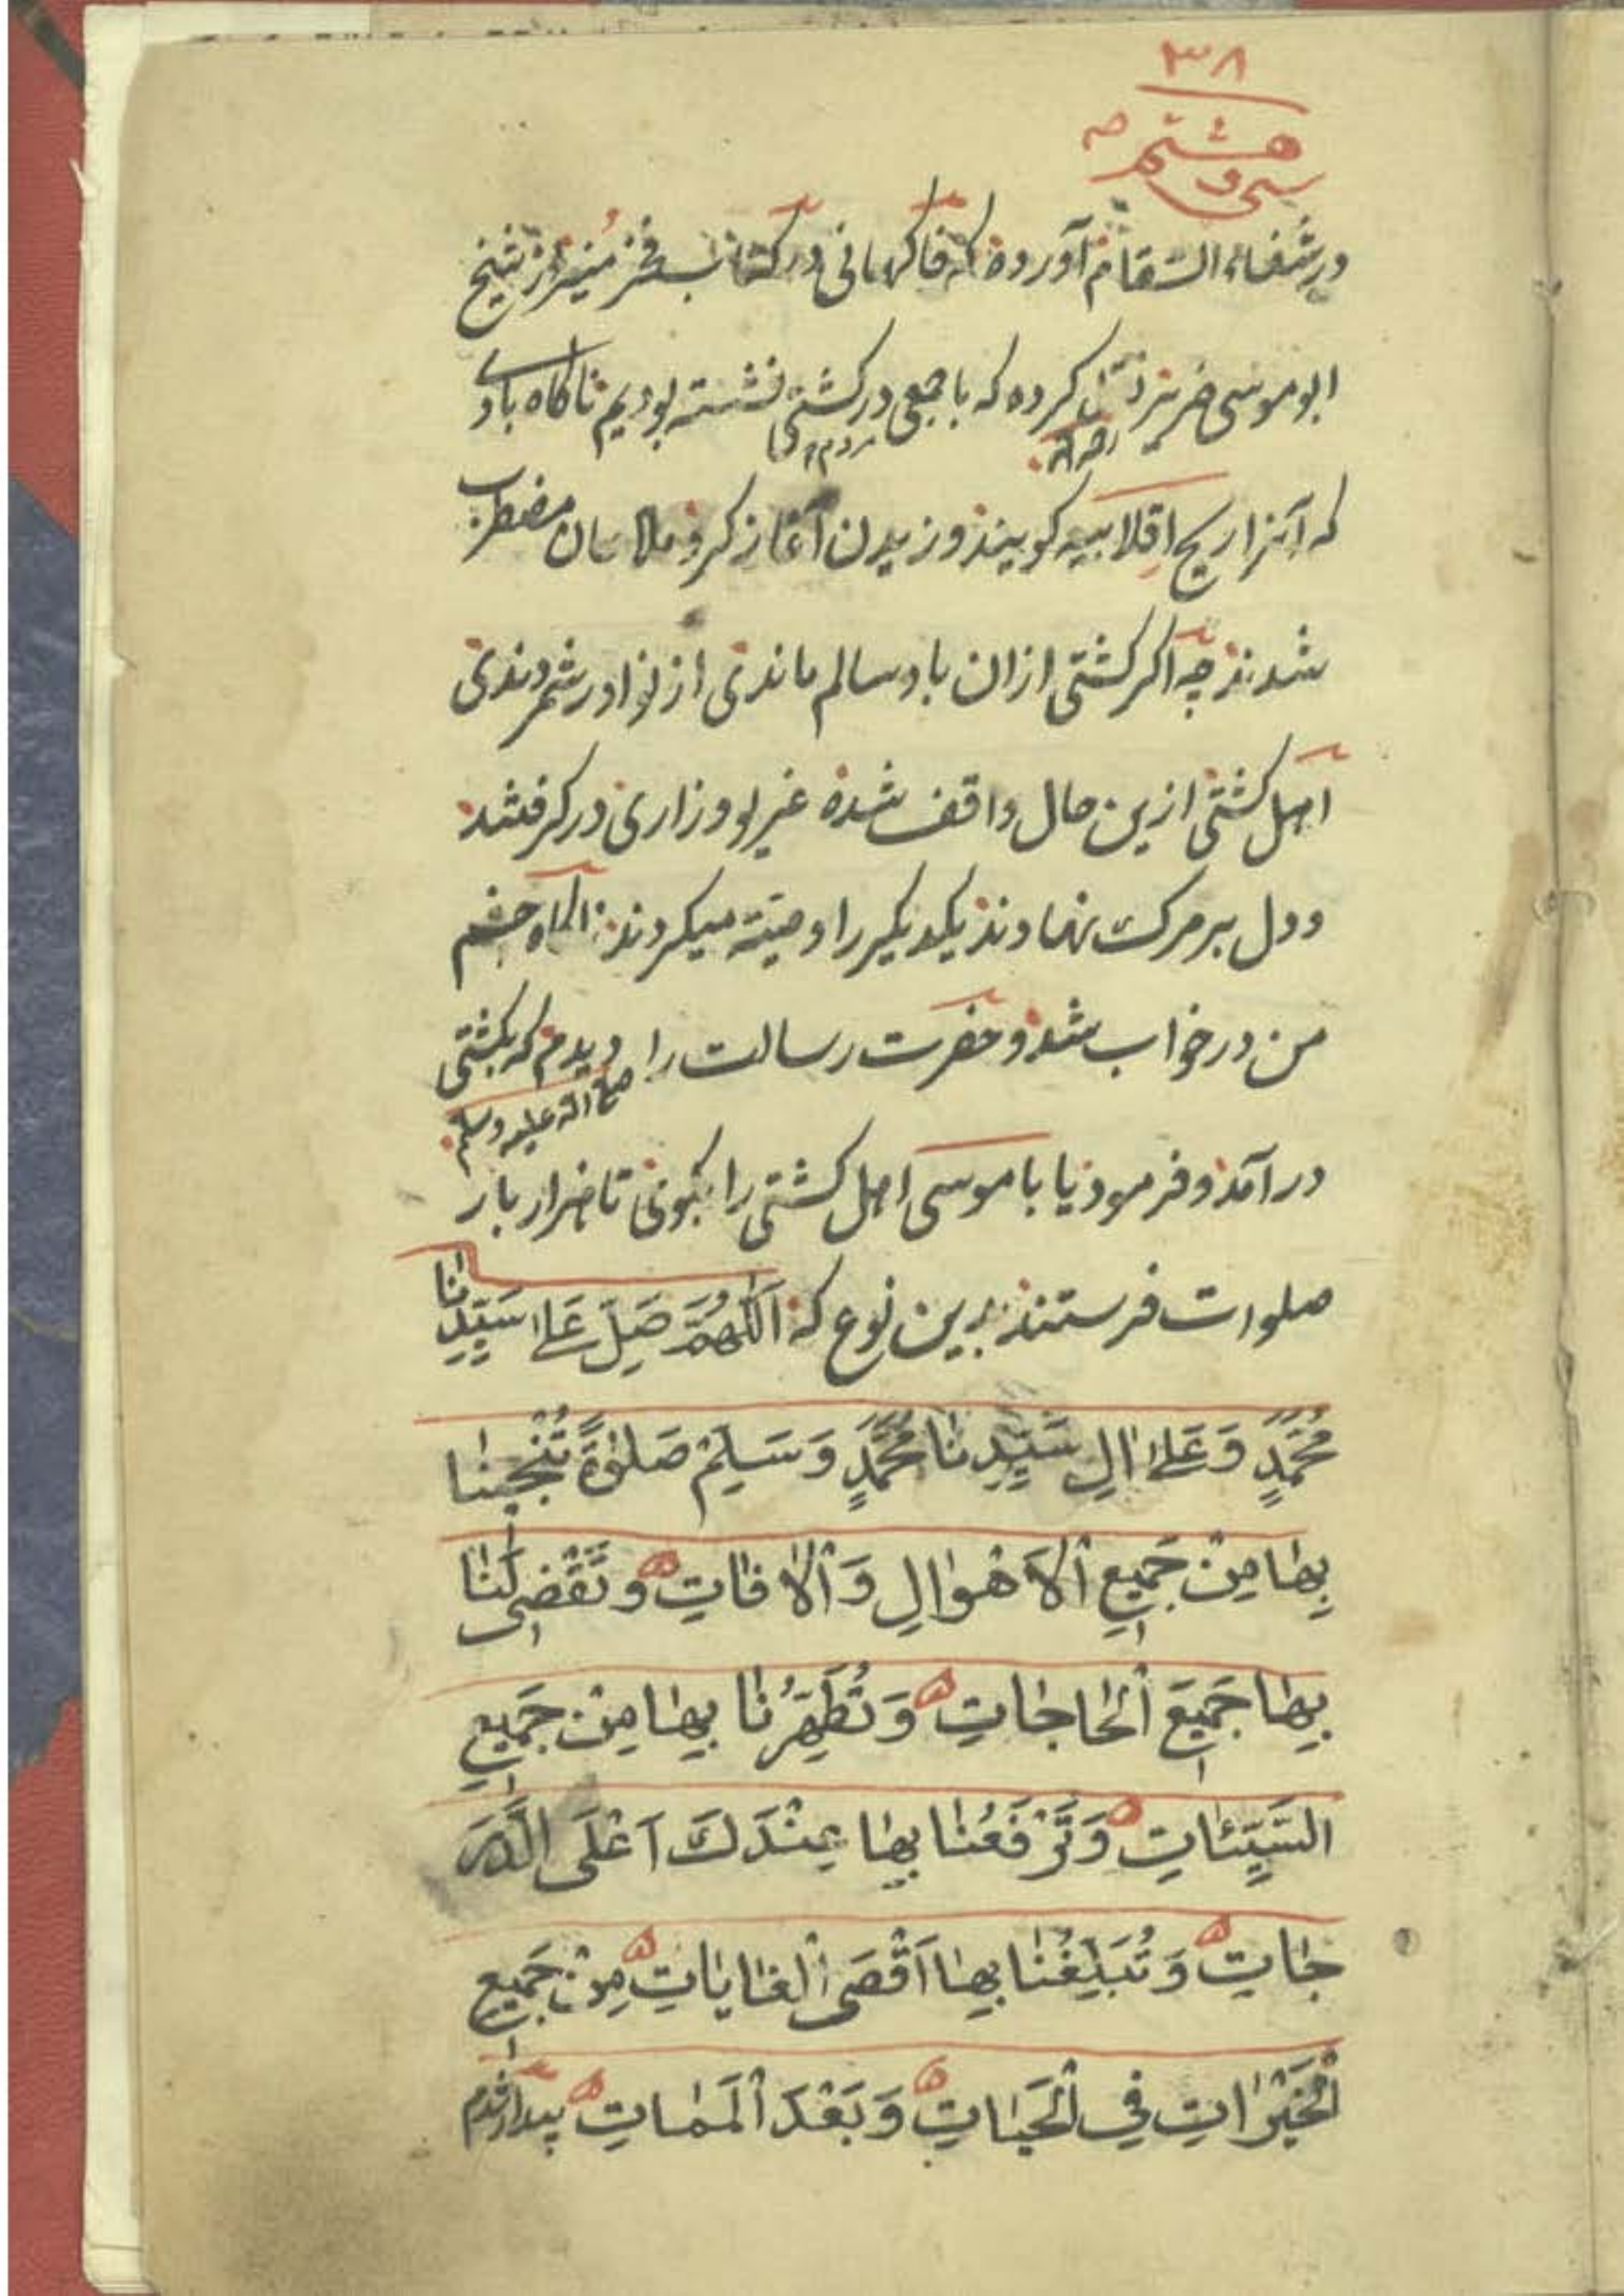 ۳۸
سی و هشتم صہ
در شفاء السقام آورده که فاکهانی در کتاب فجر منیر از شیخ
ابو موسی ضریر رحمه الله نقل کرده که با جمعی مردم در کشتی نشسته بودیم ناکاه بادی
که آنرا ریح اقلابیه کویند وزیدن آغاز کرد و ملاحان مضطرب
شدند چه اکر کشتی ازان باد سالم ماندی از نوادر شمردندی
اهل کشتی ازین حال واقف شده غریو وزاری در کرفتند
و دل بر مرک نهادند یکدیکر را وصیته میکردند ناکاه چشم
من در خواب شد و حضرت رسالت را صلی الله علیه وسلم دیدم که بکشتی
در آمد و فرمود یا با موسی اهل کشتی را بکوی تا هزار بار
صلوات فرستند برین نوع که اَللّٰهُمَّ صَلِّ عَلٰى سَيِّدِنَا
مُحَمَّدٍ وَعَلٰى اٰلِ سَيِّدِنَا مُحَمَّدٍ وَسَلِّمْ صَلٰوةً تُنْجِينَا
بِهَا مِنْ جَمِيعِ اْلاَهْوَالِ وَاْلاٰفَاتِ وَتَقْضِى لَنَا
بِهَا جَمِيعَ اْلحَاجَاتِ وَتُطَهِّرُنَا بِهَا مِنْ جَمِيعِ
السَّيِّئَاتِ وَتَرْفَعُنَا بِهَا عِنْدَكَ اَعْلَى الدَّرَ
جَاتِ وَتُبَلِّغُنَا بِهَا اَقْصَى اْلغَايَاتِ مِنْ جَمِيعِ
اْلخَيْرَاتِ فِي اْلحَيَاتِ وَبَعْدَ اْلمَمَاتِ بیدار شدم